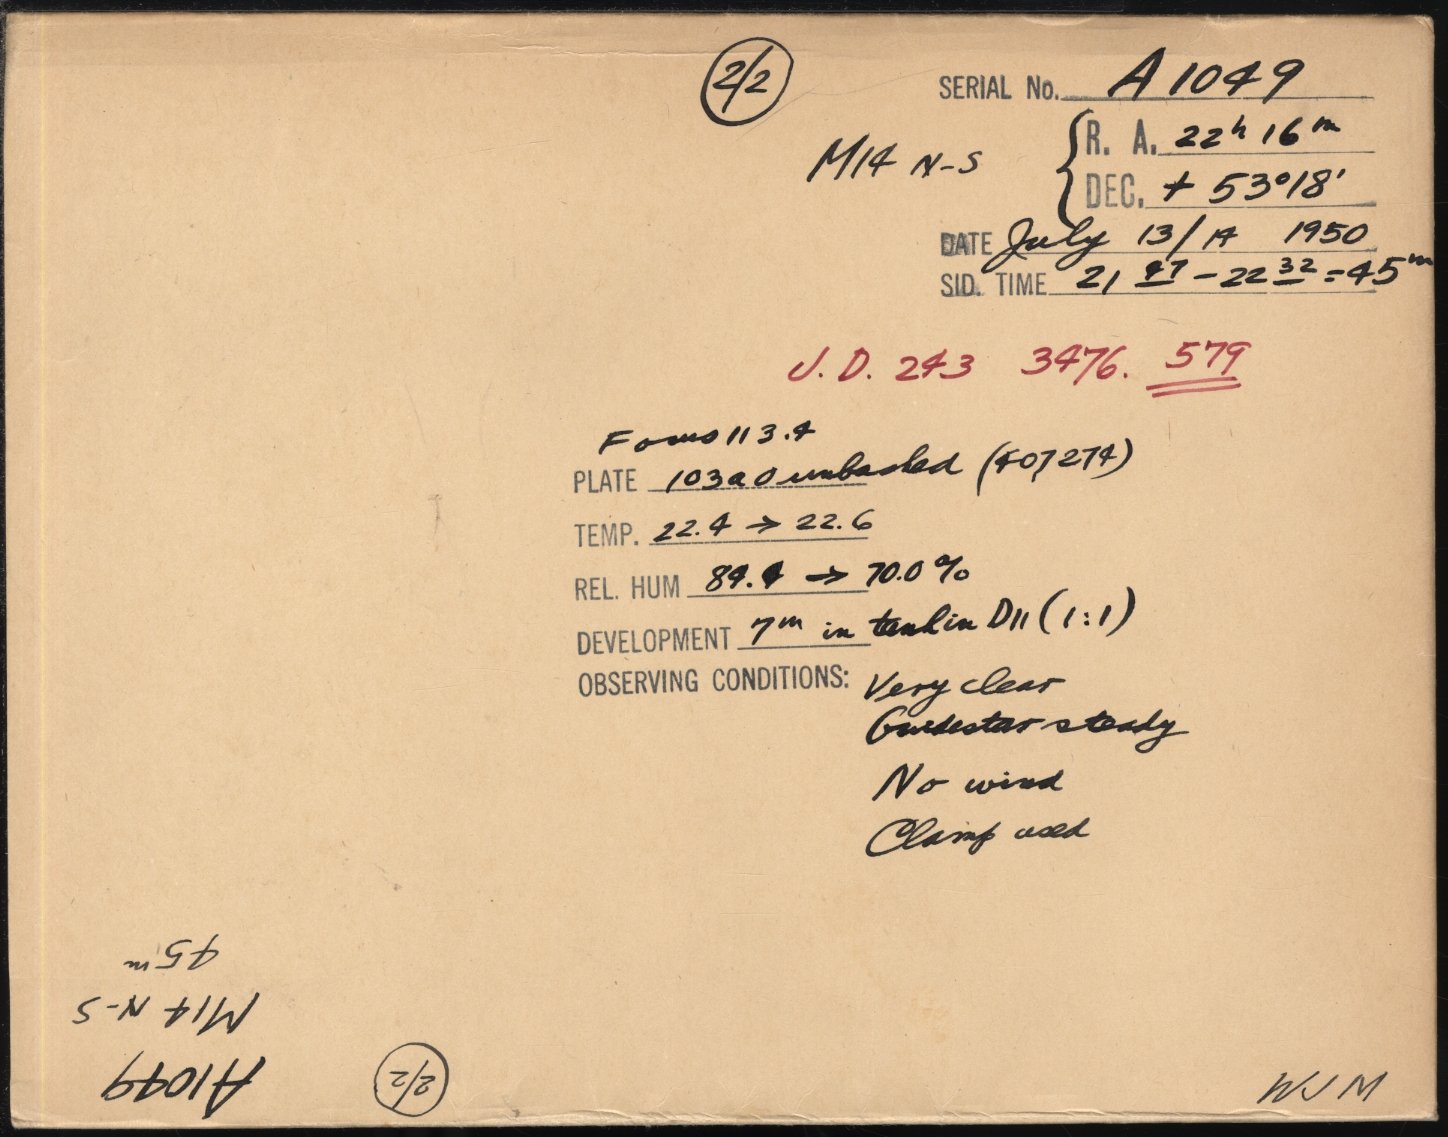 2/2
SERIAL No. A 1049
M14 N-S
R. A. 22h 16m
DEC. + 53°18'
DATE July 13/14 1950
SID. TIME 21 47 - 22 32 = 45m
J. D. 243 3476. 579
Focus 113.4
PLATE 103a0 unbacked (407274)
TEMP. 22.4 → 22.6
REL. HUM 84.4 → 70.0%
DEVELOPMENT 7m in tank in D11 (1:1)
OBSERVING CONDITIONS: Very clear
Guidestar steady
No wind
Clamp used
WJM
2/2
A1049
M14 N-S
45m